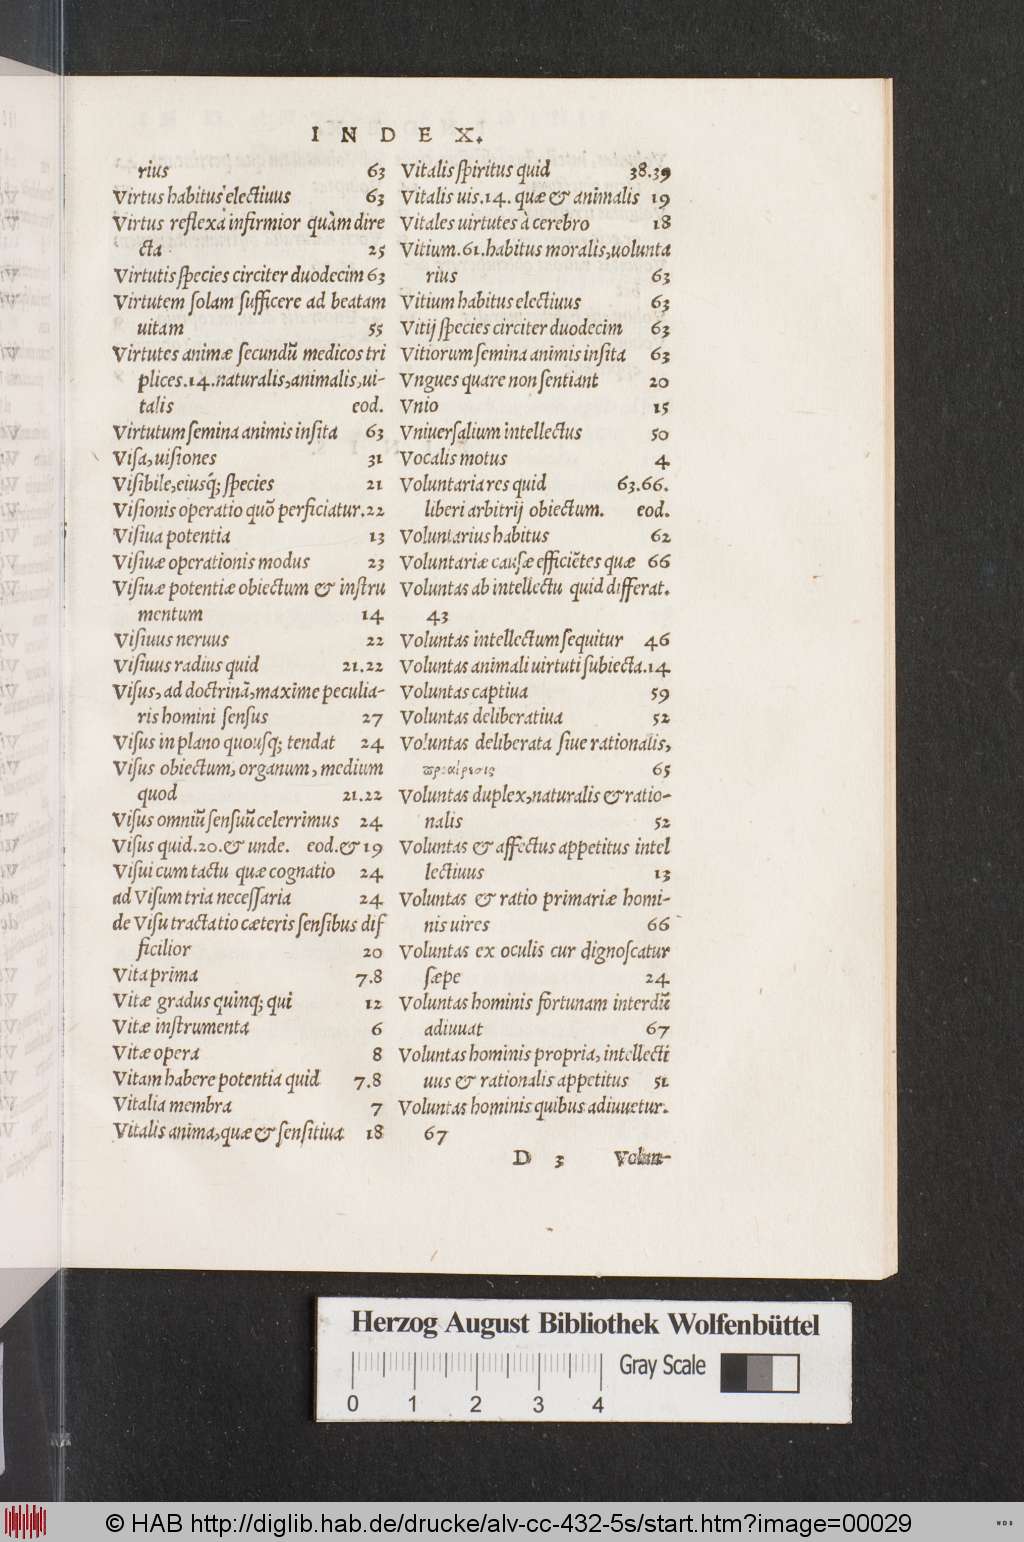 INDEX.
rius 63
Virtus habitus electiuus 63
Virtus reflexa infirmior quàm dire
cta 25
Virtutis species circiter duodecim 63
Virtutem solam sufficere ad beatam
uitam 55
Virtutes animæ secundū medicos tri
plices.14.naturalis,animalis,ui-
talis eod.
Virtutum semina animis insita 63
Visa,uisiones 31
Visibile,eiusq́; species 21
Visionis operatio quō perficiatur.22
Visiua potentia 13
Visiuæ operationis modus 23
Visiuæ potentiæ obiectum & instru
mentum 14
Visiuus neruus 22
Visiuus radius quid 21.22
Visus, ad doctrinā,maxime peculia-
ris homini sensus 27
Visus in plano quousq; tendat 24
Visus obiectum, organum, medium
quod 21.22
Visus omniū sensuū celerrimus 24
Visus quid.20.& unde. eod.& 19
Visui cum tactu quæ cognatio 24
ad Visum tria necessaria 24
de Visu tractatio cæteris sensibus dif
ficilior 20
Vita prima 7.8
Vitæ gradus quinq; qui 12
Vitæ instrumenta 6
Vitæ opera 8
Vitam habere potentia quid 7.8
Vitalia membra 7
Vitalis anima,quæ & sensitiua 18
Vitalis spiritus quid 38.39
Vitalis uis.14. quæ & animalis 19
Vitales uirtutes à cerebro 18
Vitium.61.habitus moralis,uolunta
rius 63
Vitium habitus electiuus 63
Vitij species circiter duodecim 63
Vitiorum semina animis insita 63
Vngues quare non sentiant 20
Vnio 15
Vniuersalium intellectus 50
Vocalis motus 4
Voluntaria res quid 63.66.
liberi arbitrij obiectum. eod.
Voluntarius habitus 62
Voluntariæ causæ efficiētes quæ 66
Voluntas ab intellectu quid differat.
43
Voluntas intellectum sequitur 46
Voluntas animali uirtuti subiecta.14
Voluntas captiua 59
Voluntas deliberatiua 52
Voluntas deliberata siue rationalis,
προαίρεσις 65
Voluntas duplex,naturalis & ratio-
nalis 52
Voluntas & affectus appetitus intel
lectiuus 13
Voluntas & ratio primariæ homi-
nis uires 66
Voluntas ex oculis cur dignoscatur
sæpe 24
Voluntas hominis fortunam interdū
adiuuat 67
Voluntas hominis propria, intellecti
uus & rationalis appetitus 51
Voluntas hominis quibus adiuuetur.
67
D 3 Volun-
Herzog August Bibliothek Wolfenbüttel
Gray Scale
0 1 2 3 4
© HAB http://diglib.hab.de/drucke/alv-cc-432-5s/start.htm?image=00029